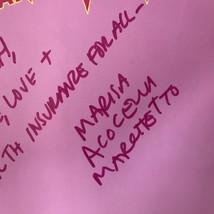 LOVE +
INSURANCE FOR ALL—
MARISA
ACOCELLA
MARCHETTO